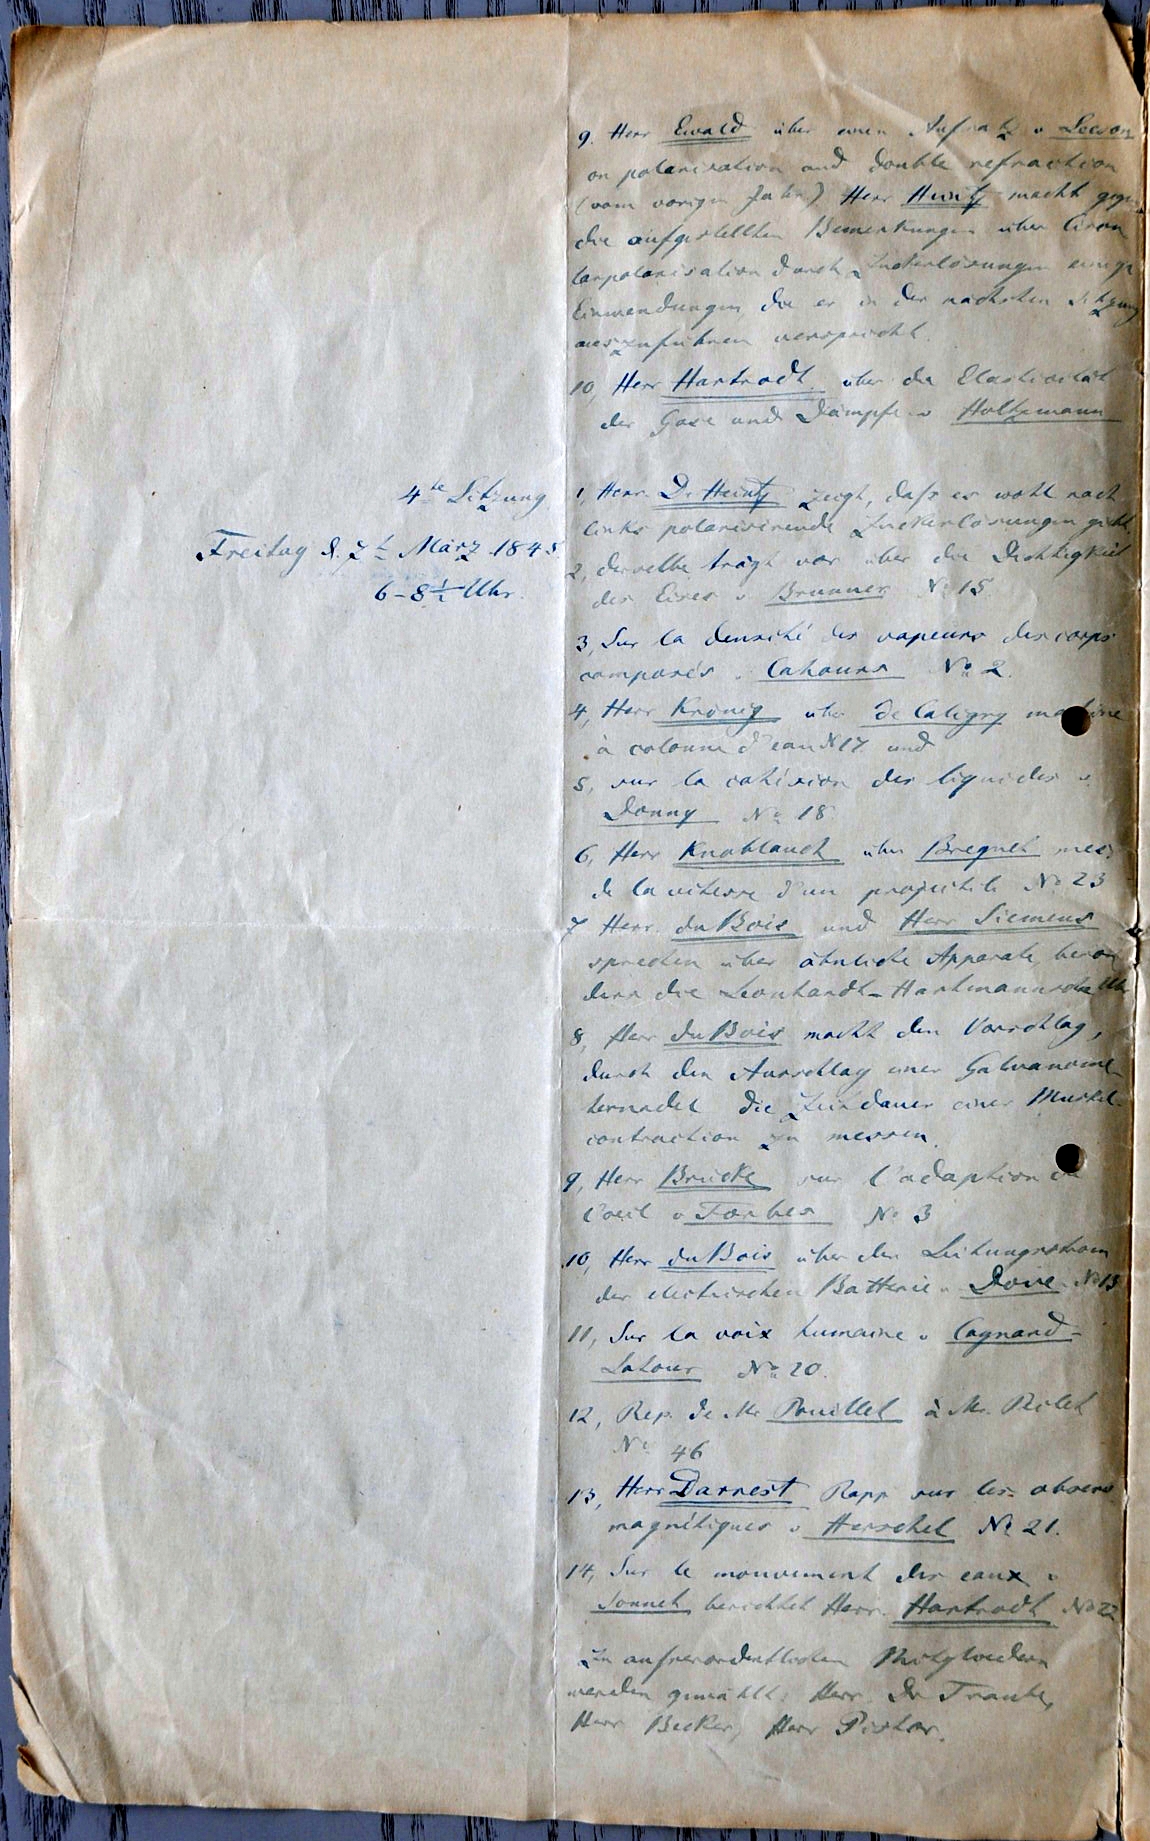 9. Herr Ewald über einen Aufsatz v Leeson
on polarisation and double refraction
(vom vorigen Jahr) Herr Heintz macht gegen
die aufgestellten Bemerkungen über Circu
larpolarisation durch Zuckerlösungen einige
Einwendungen, die er in der nächsten Sitzung
auszuführen verspricht.
10, Herr Hartrodt über die Elasticität
der Gase und Dämpfe v Holtzmann
4te Sitzung
Freitag d. 7t März 1845
6-8½ Uhr.
1, Herr Dr Heintz zeigt, dass es wohl nach
links polarisirende Zuckerlösungen giebt.
2, derselbe trägt vor über die Dichtigkeit
des Eises v Brunner No 15
3, Sur la densité des vapeurs des corps
composés v Cahours No 2.
4, Herr Krönig über de Caligny machine
à colonne d'eau N 17 und
5, sur la cohésion des liquides v.
Donny No 18
6, Herr Knoblauch über Breguet mes
de la vitesse d'un projectile No 23
7 Herr du Bois und Herr Siemens
sprechen über ähnliche Apparate, beson
ders die Leonhardt-Hartmannsche Uhr
8, Herr du Bois macht den Vorschlag,
durch den Ausschlag einer Galvanome
ternadel die Zeitdauer einer Muskel-
contraction zu messen.
9, Herr Brücke sur l'adaption de
l'oeil v Forbes No 3
10, Herr du Bois über den Leitungsstrom
der electrischen Batterie v. Dove No 13
11, Sur la voix humaine v Cagnard-
Latour No 20.
12, Rep. de Mr Pouillet à Mr. Peclet
No 46
13, Herr Darrest Rapp sur les observ
magnétiques v Herschel No 21.
14, Sur le mouvement des eaux v
Sonnet berichtet Herr Hartrodt No 22
Zu ausserordentlichen Mitgliedern
werden gewählt: Herr Dr Traube,
Herr Becker, Herr Pistor.